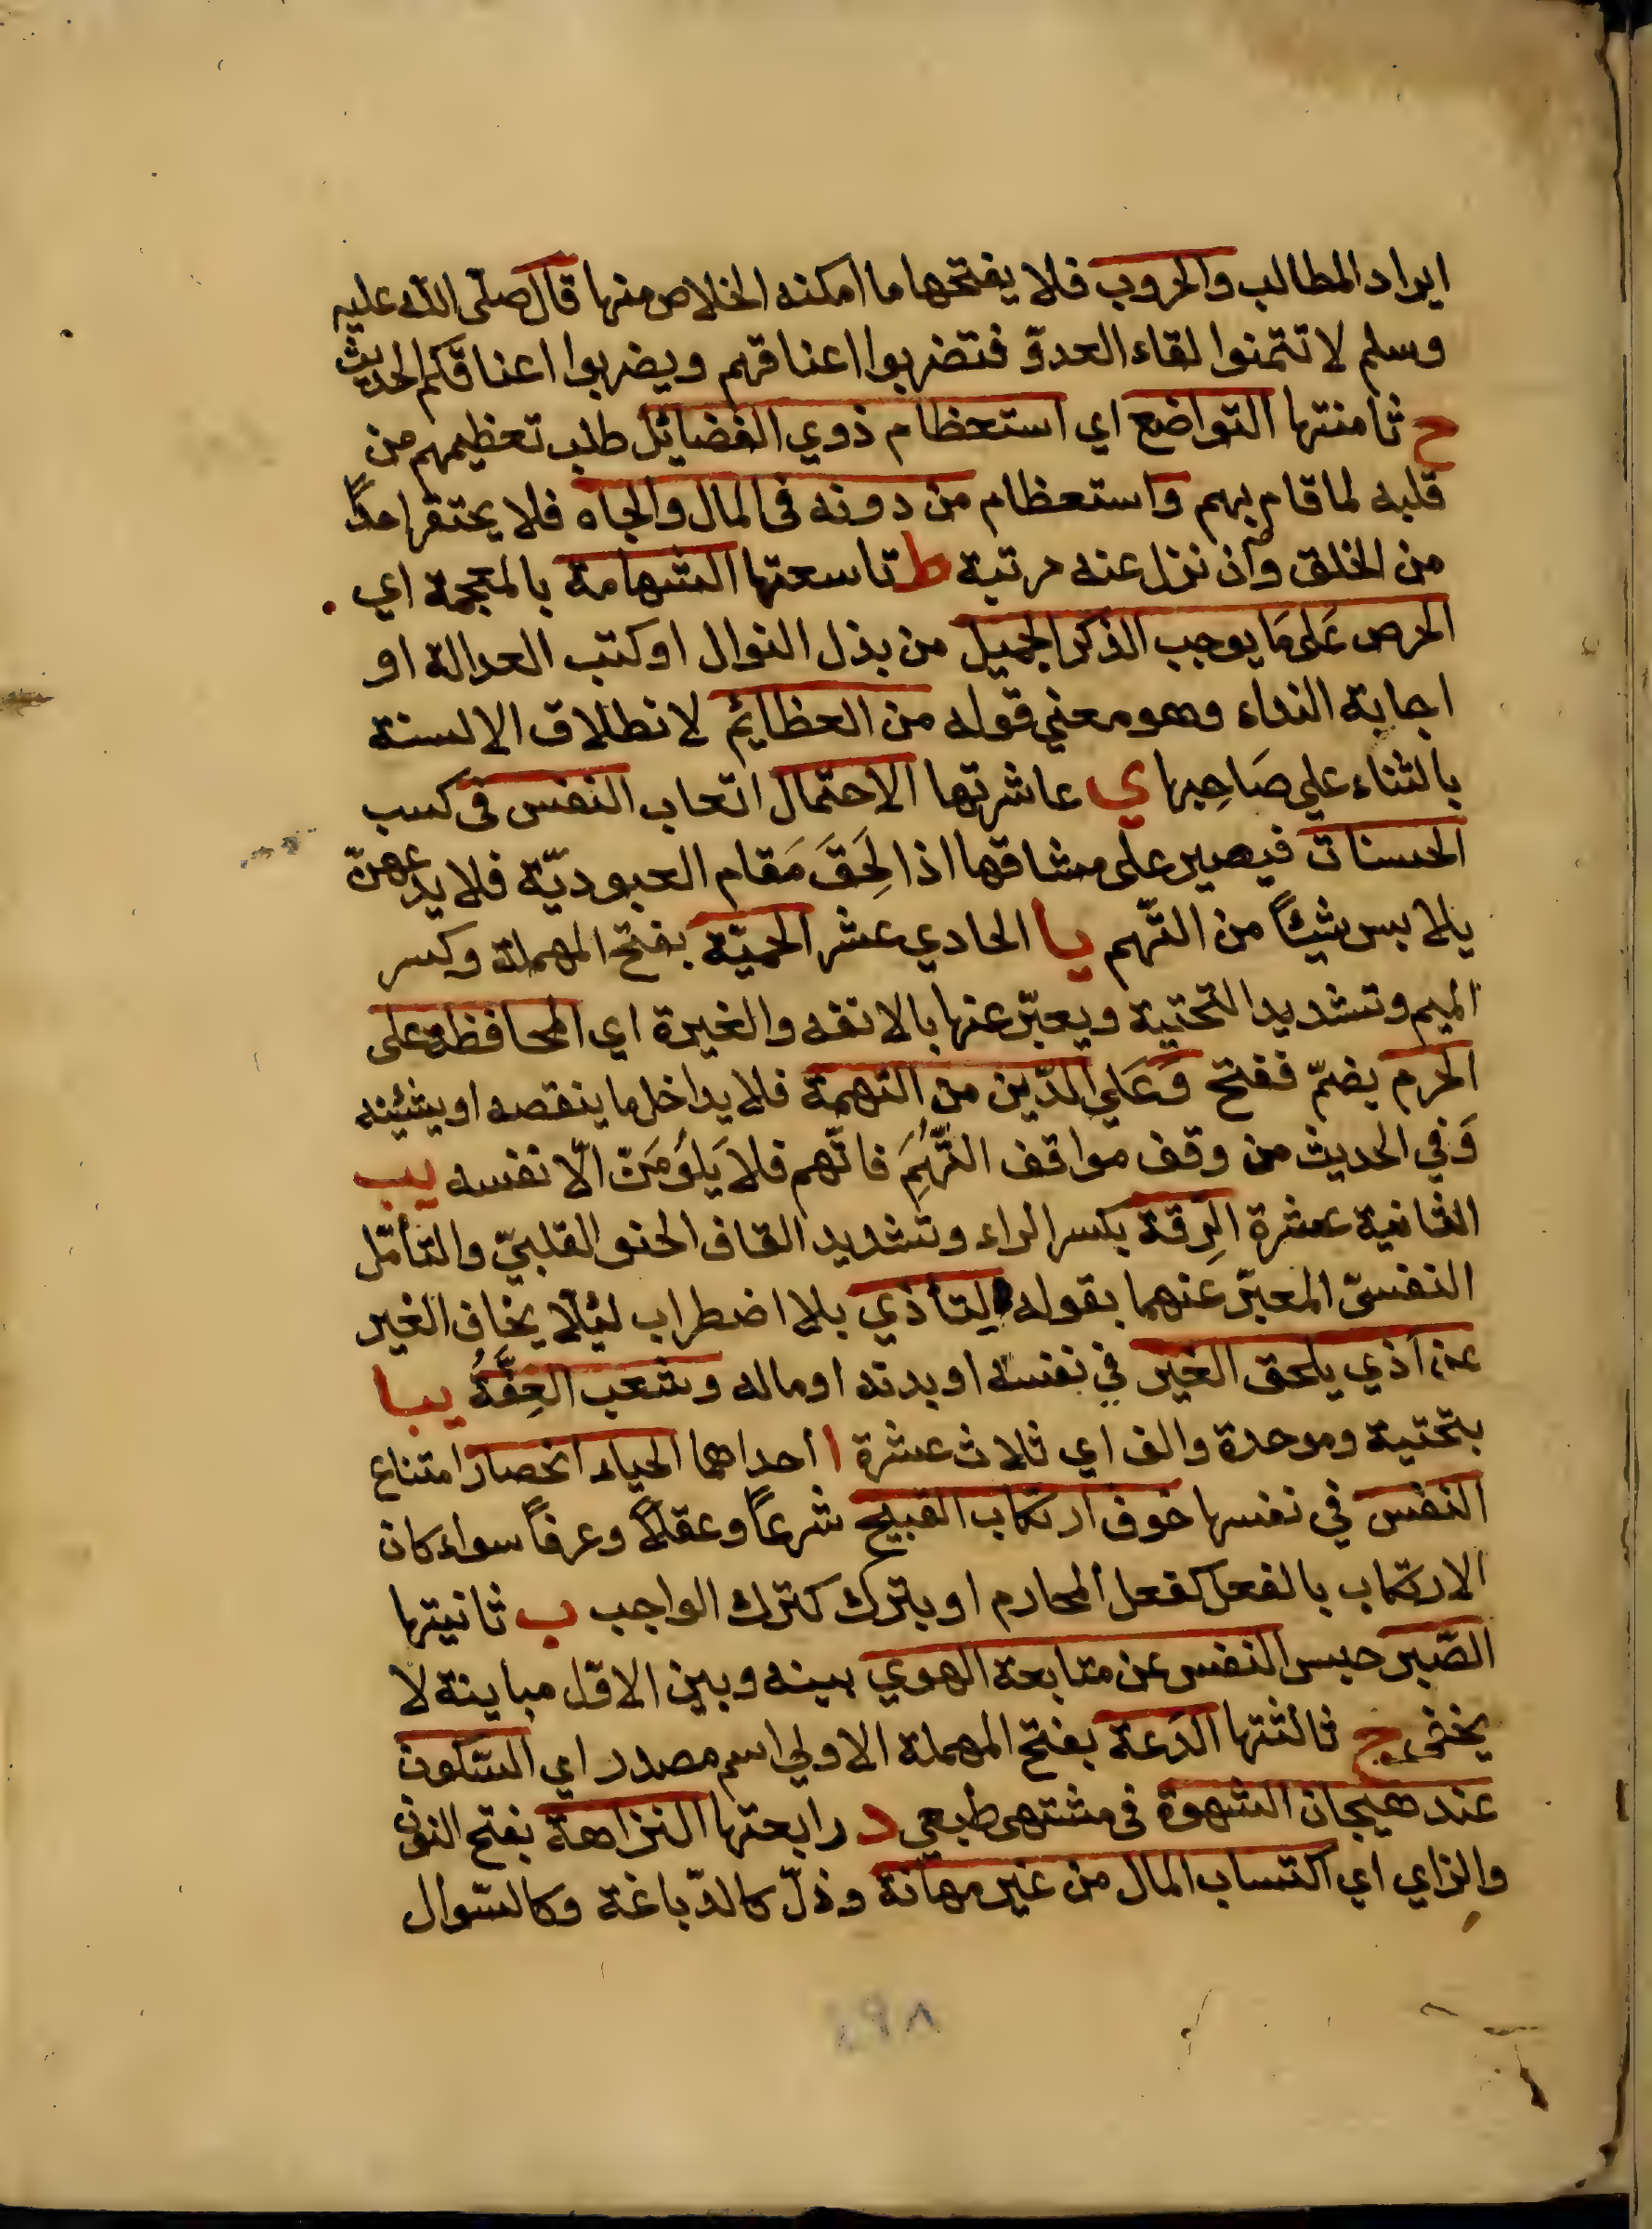 ايراد المطالب والحروب فلا يفتحها ما امكنه الخلاص منها قال صلى الله عليه
وسلم لا تتمنوا لقاء العدوّ فتضربوا اعناقهم ويضربوا اعناقكم الحديث
ح ثامنتها التواضع اي استعظام ذوي الفضايل طلب تعظيمهم من
قلبه لما قام بهم واستعظام من دونه في المال والجاه فلا يحتقر احدًا
من الخلق وان نزل عنه مرتبة ط تاسعتها الشهامة بالمعجمة اي
الحرص عَلى مَا يوجب الذكر الجميل من بذل النوال او كتب العدالة او
اجابة النداء وهو معني قوله من العظايم لانطلاق الالسنة
بالثناء علي صَاحِبها ي عاشرتها الاحتمال اتعاب النفس في كسب
الحسنات فيصير على مشاقها اذا لَحِقَ مَقام العبوديّة فلا يدعهنّ
يلابس شيئًا من التّهم يا الحادي عشر الحميّة بفتح المهملة وكسر
الميم وتشديد التحتية ويعبّر عنها بالانفه والغيرة اي المحافظة على
الحرم بضمّ ففتح وَعَلي الدّين من التهمة فلا يداخل ما ينقصه او يشينه
وَفي الحديث من وقف مواقف التُّهَمِ فاتّهم فلا يَلُومَنّ الّا نفسه يب
الثانية عشرة الرِقة بكسر الراء وتشديد القاف الحنو القلبيّ والتأمّل
النفسيّ المعبّر عنهما بقوله التأذي بلا اضطراب لئلا يخاف الغير
عن اذي يلحق الغير في نفسه او بدنه او ماله وشعب العِفَّةُ يبا
بتحتية وموحدة والف اي ثلاث عشرة ا احداهما الحياء انحصار امتناع
النفس في نفسها خوف ارتكاب القبيح شرعًا وعقلًا وعرفًا سواء كان
الارتكاب بالفعل كفعل المحارم او بترك كترك الواجب ب ثانيتها
الصّبر حبس النفس عن متابعة الهوي بينه وبين الاوّل مباينة لا
يخفي ج ثالثتها الدَعة بفتح المهملة الاولي اسم مصدر اي السّكون
عند هيجان الشهوة في مشتهى طبعي د رابعتها النزاهة بفتح النون
والزاي اي اكتساب المال من غير مهانة وذلّ كالدّباغة وكالسّوال